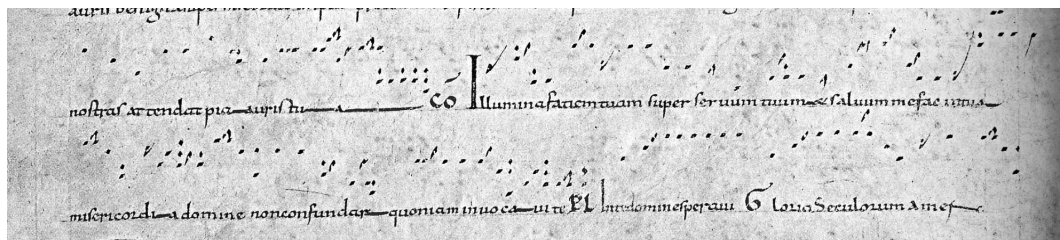 nostras attendat pia auris tua CŌ Illumina faciem tuam super servum tuum & salvum me fac in tua
misericordia domine non confundar quoniam invocavi te Ps In te domine speravi Gloria Seculorum amen